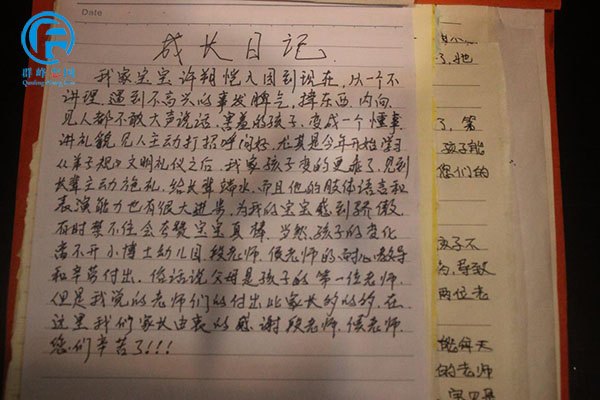 群峰
Date
成长日记
我家宝宝许翔恺入园到现在，从一个不
讲理，遇到不高兴的事发脾气，摔东西，内向，
见人都不敢大声说话，害羞的孩子，变成一个懂事，
讲礼貌见人主动打招呼问好，尤其是今年开始学习
《弟子规》文明礼仪之后，我家孩子变的更乖了，见到
长辈主动施礼，给长辈端水，而且他的肢体语言和
表演能力也有很大进步，为我的宝宝感到骄傲，
有时禁不住会夸赞宝宝真棒，当然，孩子的变化
离不开小博士幼儿园，段老师，侯老师的耐心教导
和辛劳付出，俗话说父母是孩子的第一位老师，
但是我说的老师们的付出比家长的多的多，在
这里我们家长由衷的感谢段老师，侯老师，
您们辛苦了！！！
了，她
了，第
孩子能
您们的
孩子不
为，导致
两位老
能每天
的老师